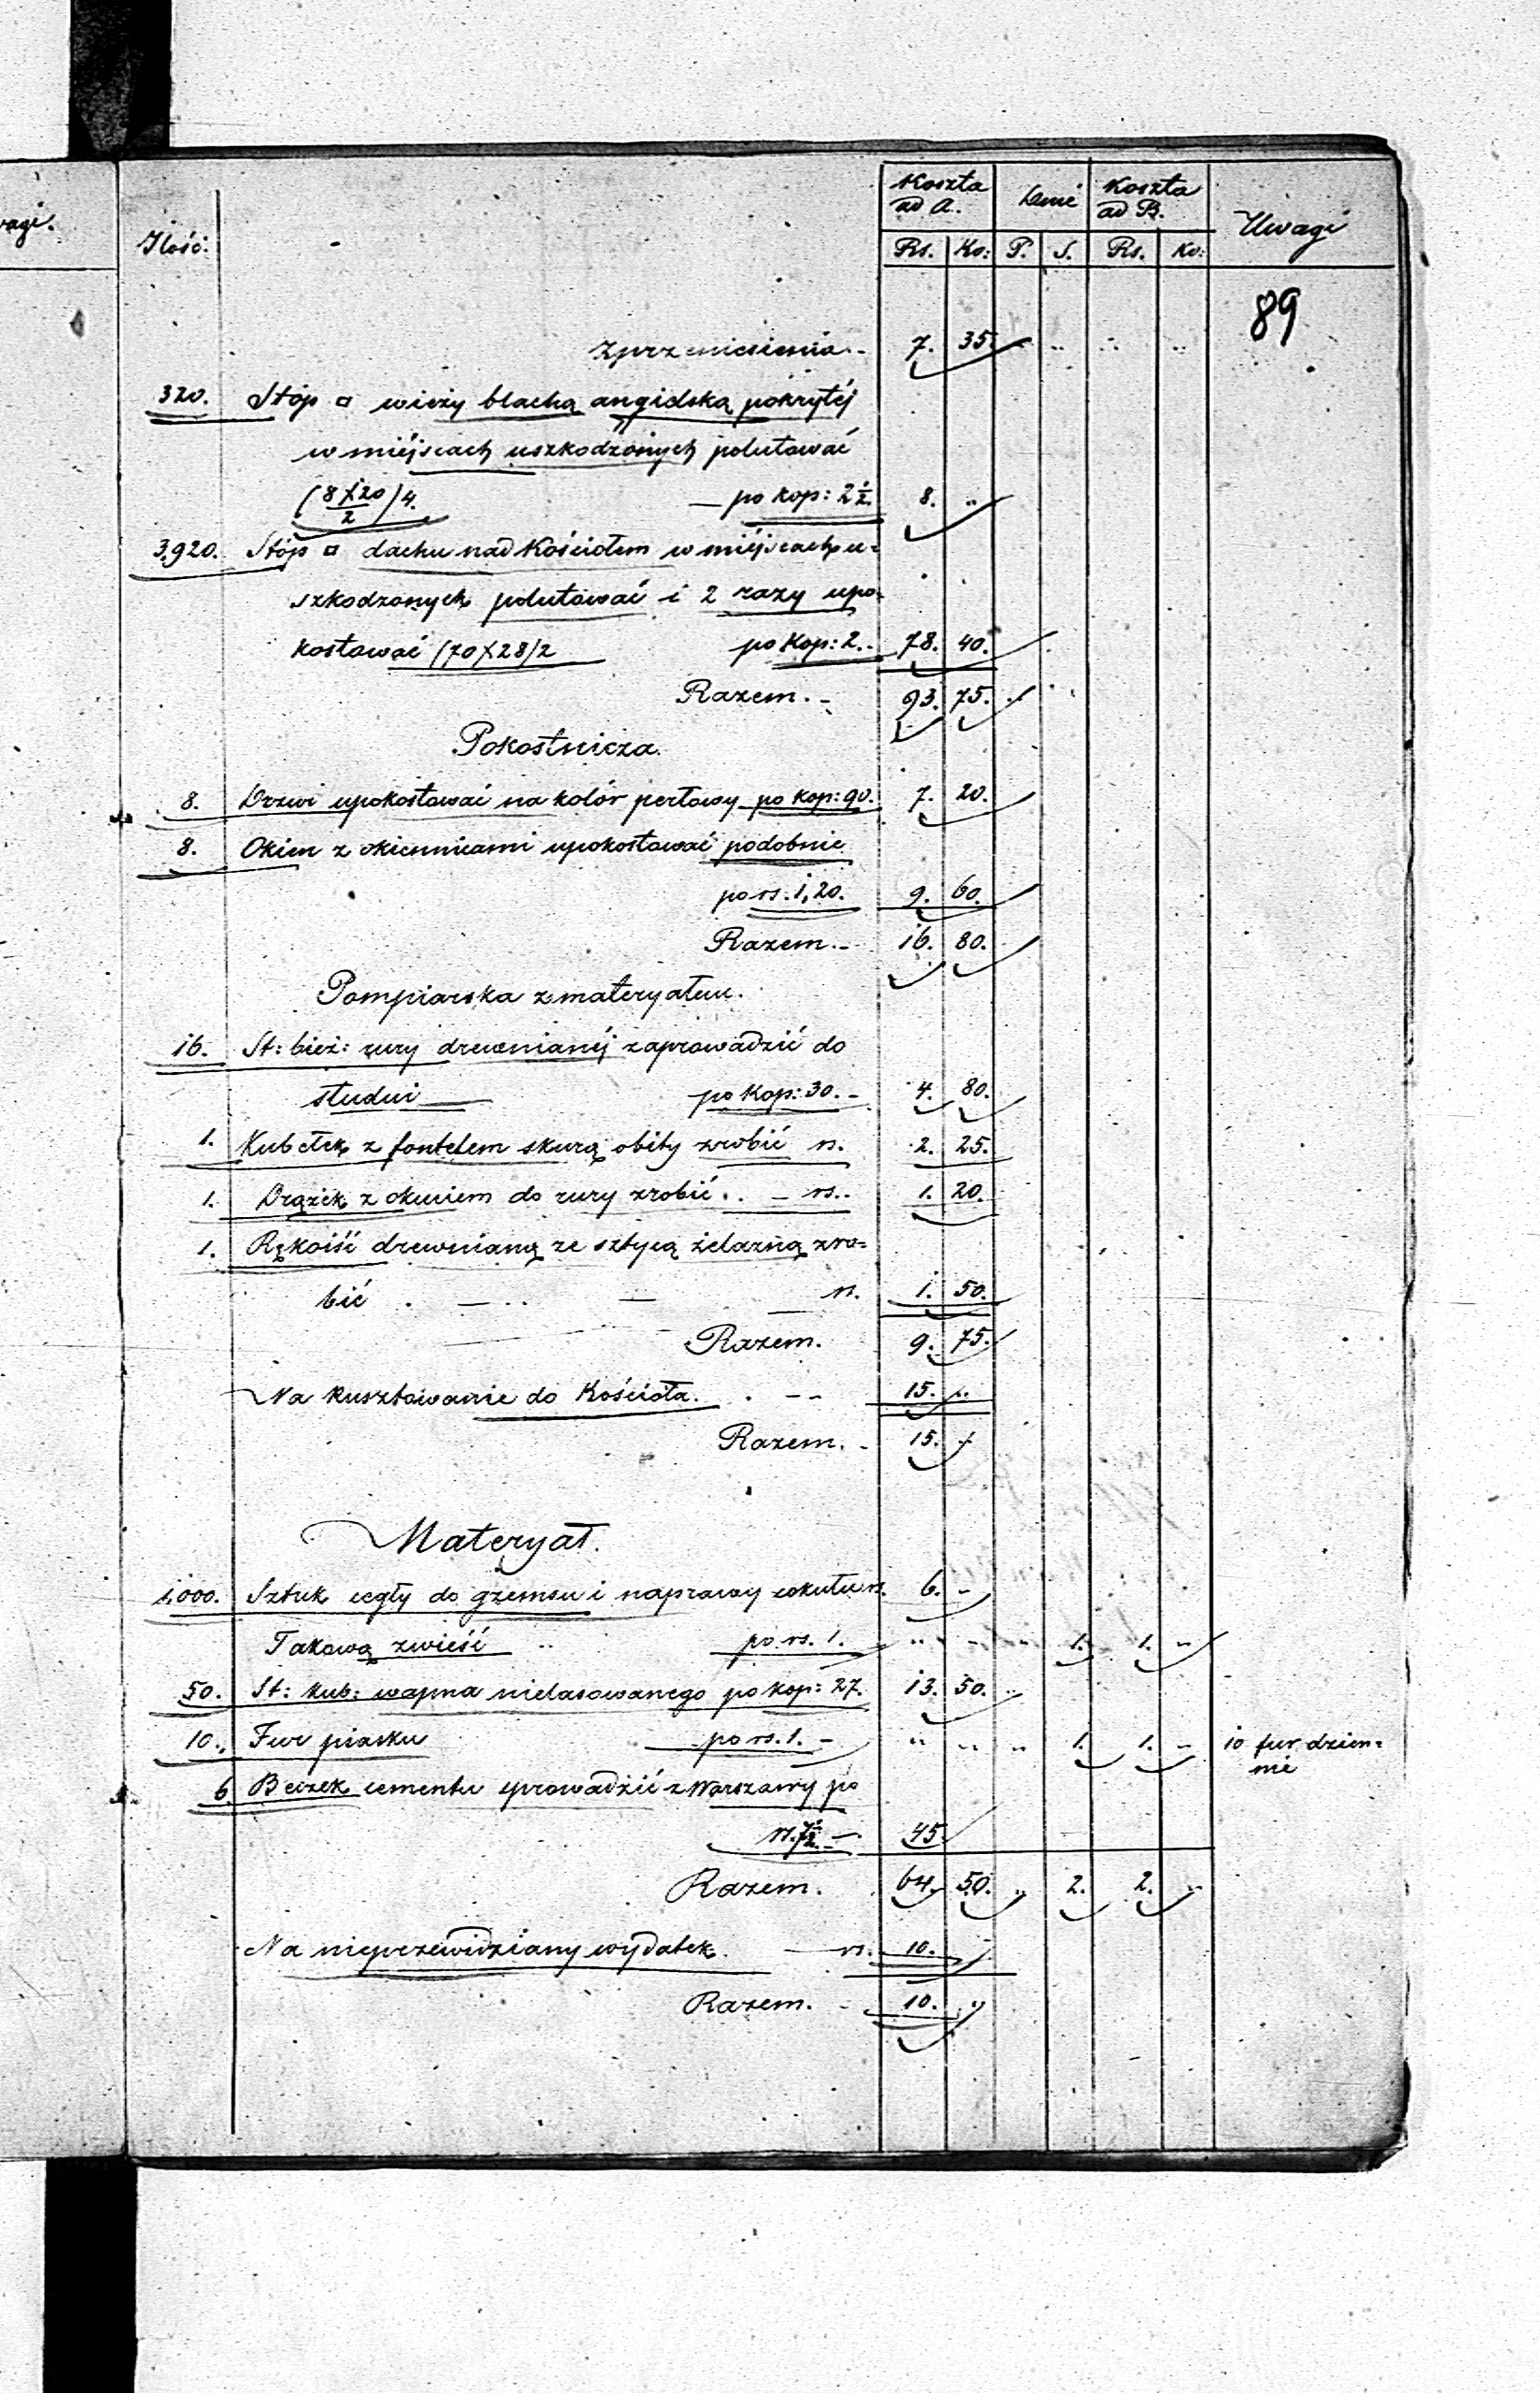 wagi.
Ilość:
Koszta ad A.
Dnie
Koszta ad B.
Uwagi
Rs. Ko: P. S. Rs. Ko:
89
Z przeniesienia.- 7. 35. " " " "
320. Stóp □ wieży blachą angielską pokrytéj
w miéjscach uszkodzonych polutować
(8×20/2)4. — po kop: 2½. 8. "
3,920. Stóp □ dachu nad Kościołem w miéjscach u=
szkodzonych polutować i 2 razy upo=
kostować (70×28)2 po Kop: 2.- 78. 40.
Razem.- 93. 75. "
Pokostnicza.
8. Drzwi upokostować na kolór perłowy po kop: 90. 7. 20.
8. Okien z okiennicami upokostować podobnie
po rs. 1,20. 9. 60.
Razem.- 16. 80.
Pompiarska z materyałem.
16. St: bież: rury drewnianéj zaprowadzić do
studni — po Kop: 30.- 4. 80.
1. Kubełek z fontelem skurą obity zrobić rs. 2. 25.
1. Drążek z okuciem do rury zrobić.. - rs.. 1. 20.
1. Rękojść drewnianą ze sztycą żelazną zro=
bić . — .. — rs. 1. 50.
Razem. 9. 75.
Na rusztowanie do Kościoła. . -- 15. "
Razem.- 15. "
Materyał.
1,000. Sztuk cegły do gzemsu i naprawy cokułu rs. 6. -
Takową zwieść .. po rs. 1. " " " 1. 1. "
50. St: kub: wapna nielasowanego po kop: 27. 13. 50. "
10. Fur piasku po rs. 1.- " " " 1. 1. - 10 fur dzien=
nie
6 Beczek cementu sprowadzić z Warszawy po
rs. 7½.- 45.
Razem. 64. 50. " 2. 2. "
Na nieprzewidziany wydatek. — rs. 10. "
Razem. - 10. "